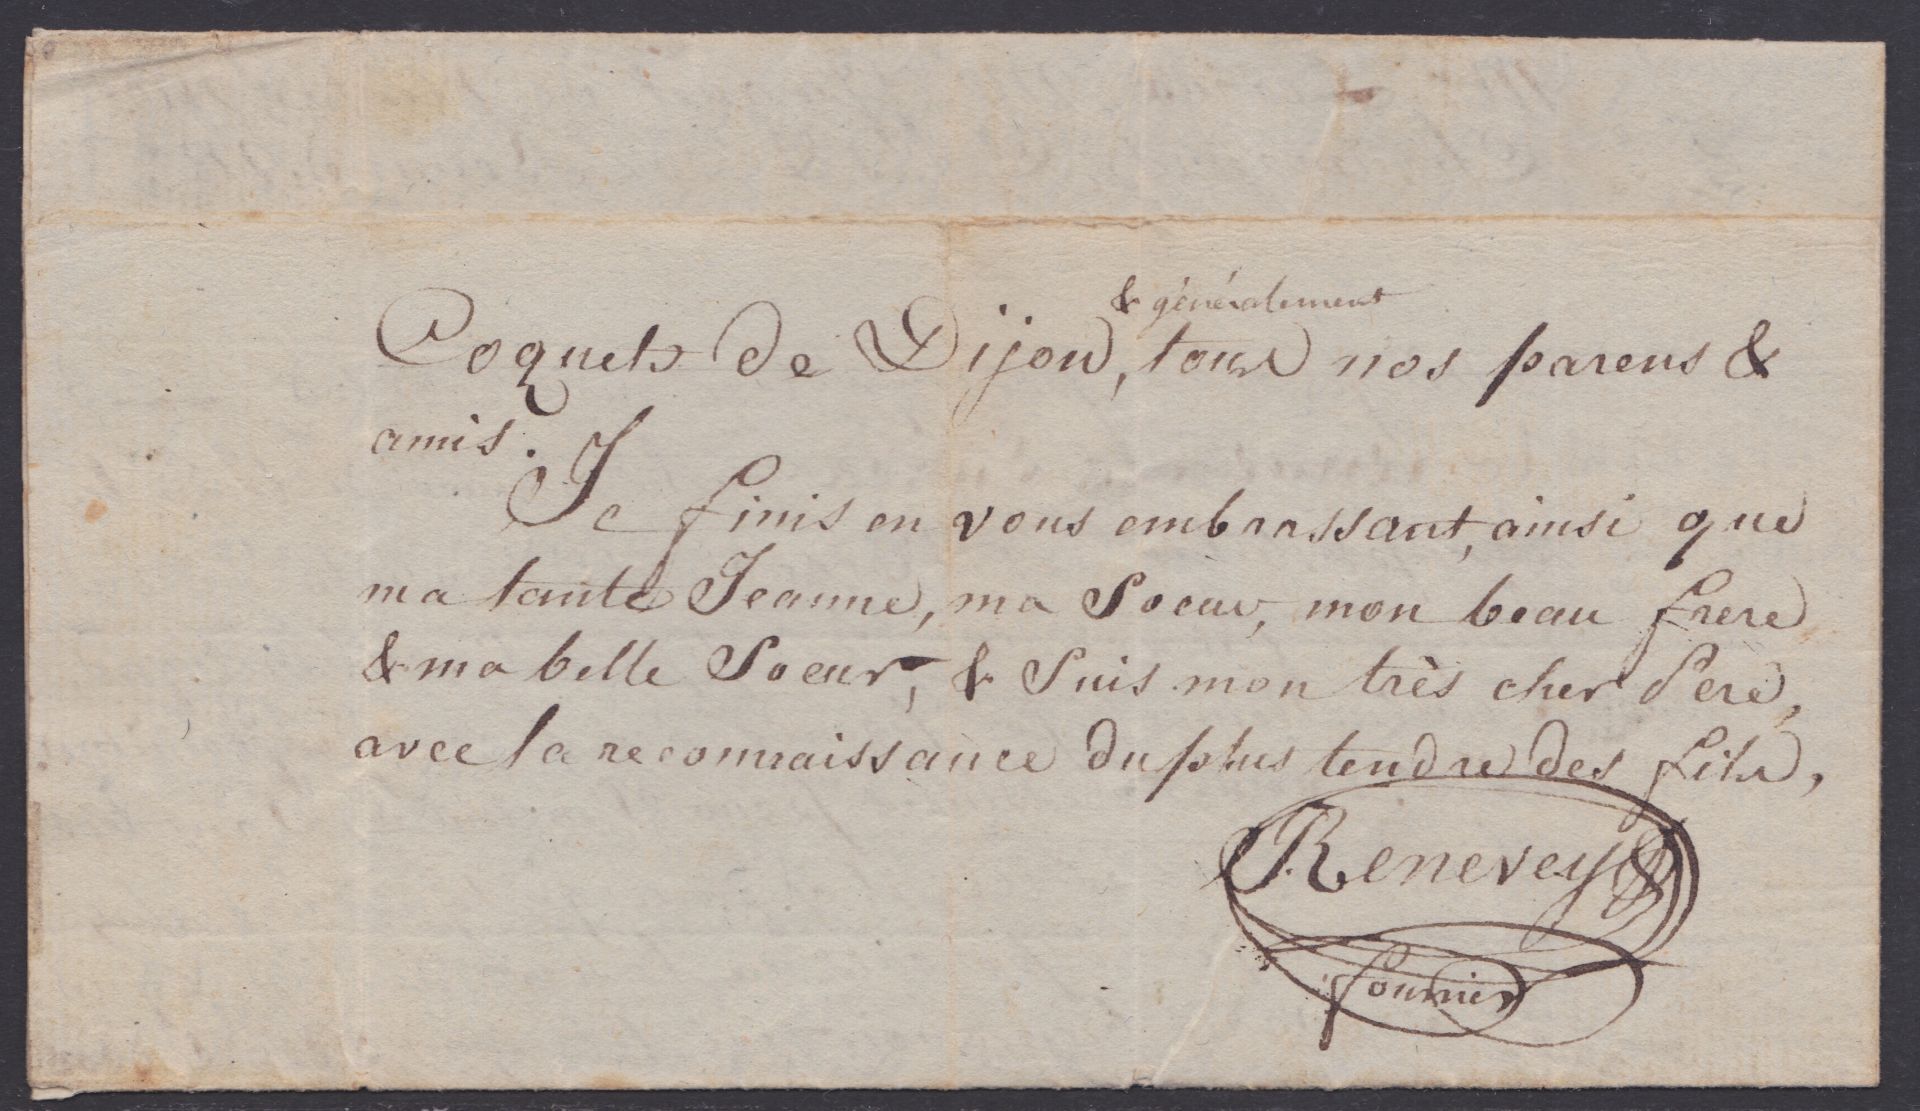 & généralement
Coquets de Dijon, tous nos parens &
amis.
Je finis en vous embrassant, ainsi que
ma tante Jeanne, ma Soeur, mon beau frere
& ma belle Soeur, & Suis mon très cher Pere,
avec la reconnaissance du plus tendre des fils,
Renevey
fournier